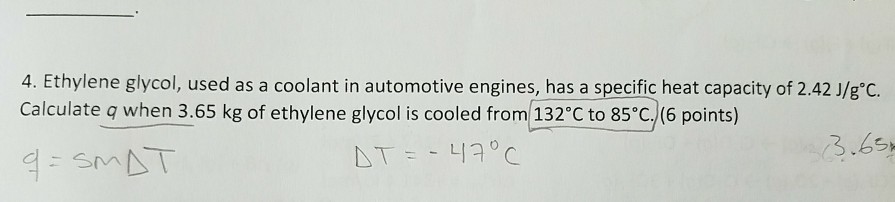 4. Ethylene glycol, used as a coolant in automotive engines, has a specific heat capacity of 2.42 J/g°C.
Calculate q when 3.65 kg of ethylene glycol is cooled from 132°C to 85°C. (6 points)
q = smΔT ΔT = -47°C 3.65